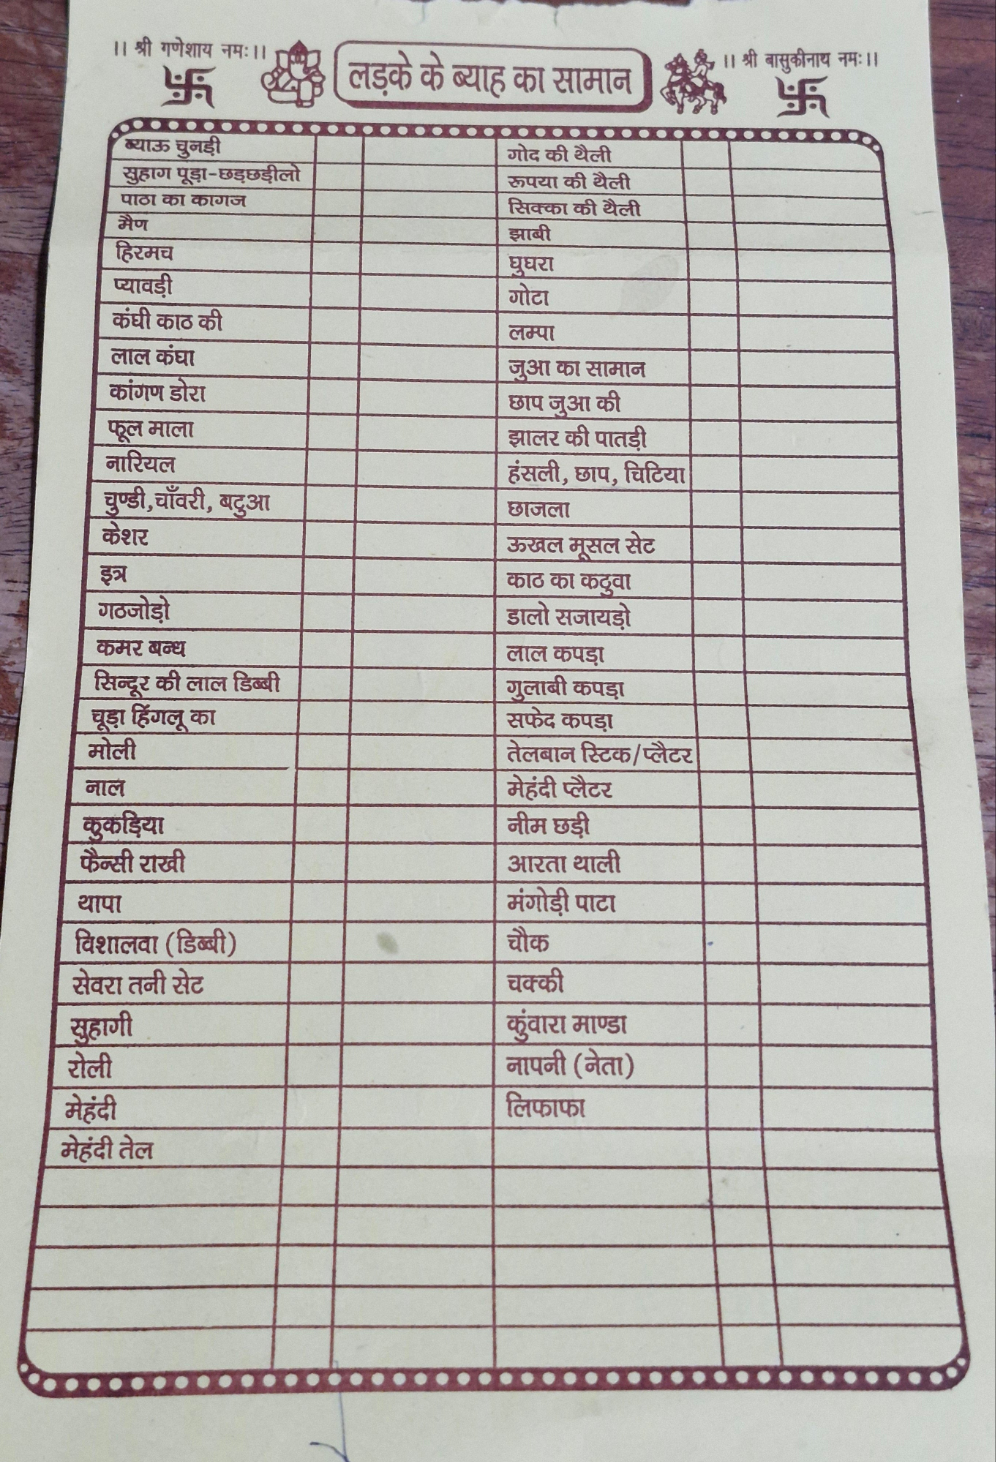 ।। श्री गणेशाय नमः।।
लड़के के ब्याह का सामान
।। श्री बासुकीनाथ नमः।।
ब्याऊ चुनड़ी
सुहाग पूड़ा-छड़छड़ीलो
पाठा का कागज
मैण
हिरमच
प्यावड़ी
कंघी काठ की
लाल कंघा
कांगण डोरा
फूल माला
नारियल
चुण्डी,चाँवरी, बटुआ
केशर
इत्र
गठजोड़ो
कमर बन्ध
सिन्दूर की लाल डिब्बी
चूड़ा हिंगलू का
मोली
नाल
कुकड़िया
फैन्सी राखी
थापा
विशालवा (डिब्बी)
सेवरा तनी सेट
सुहागी
रोली
मेहंदी
मेहंदी तेल
गोद की थैली
रूपया की थैली
सिक्का की थैली
झाबी
घुघरा
गोटा
लम्पा
जुआ का सामान
छाप जुआ की
झालर की पातड़ी
हंसली, छाप, चिटिया
छाजला
ऊखल मूसल सेट
काठ का कठुवा
डालो सजायड़ो
लाल कपड़ा
गुलाबी कपड़ा
सफेद कपड़ा
तेलबान स्टिक/प्लैटर
मेहंदी प्लैटर
नीम छड़ी
आरता थाली
मंगोड़ी पाटा
चौक
चक्की
कुंवारा माण्डा
नापनी (नेता)
लिफाफा